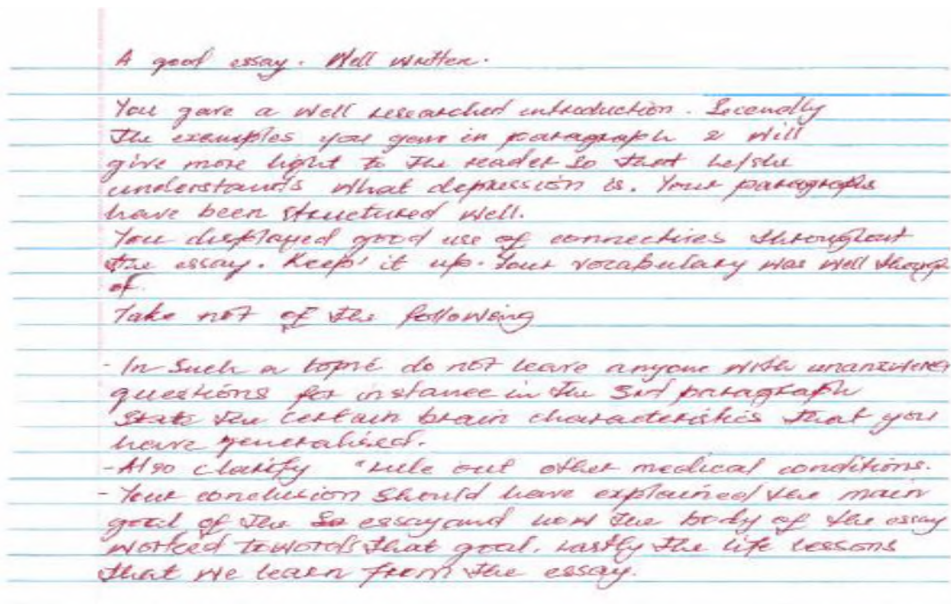 A good essay. Well written.
You gave a well researched introduction. Secondly
the examples you gave in paragraph 2 will
give more light to the reader so that he/she
understands what depression is. Your paragraphs
have been structured well.
You displayed good use of connectives throughout
the essay. Keep it up. Your vocabulary was well though
of.
Take not of the following
- In such a topic do not leave anyone with unanswered
questions for instance in the 3rd paragraph
state the certain brain characteristics that you
have generalised.
- Also clarify "rule out other medical conditions.
- Your conclusion should have explained the main
goal of the essay and how the body of the essay
worked towards that goal. Lastly the life lessons
that we learn from the essay.